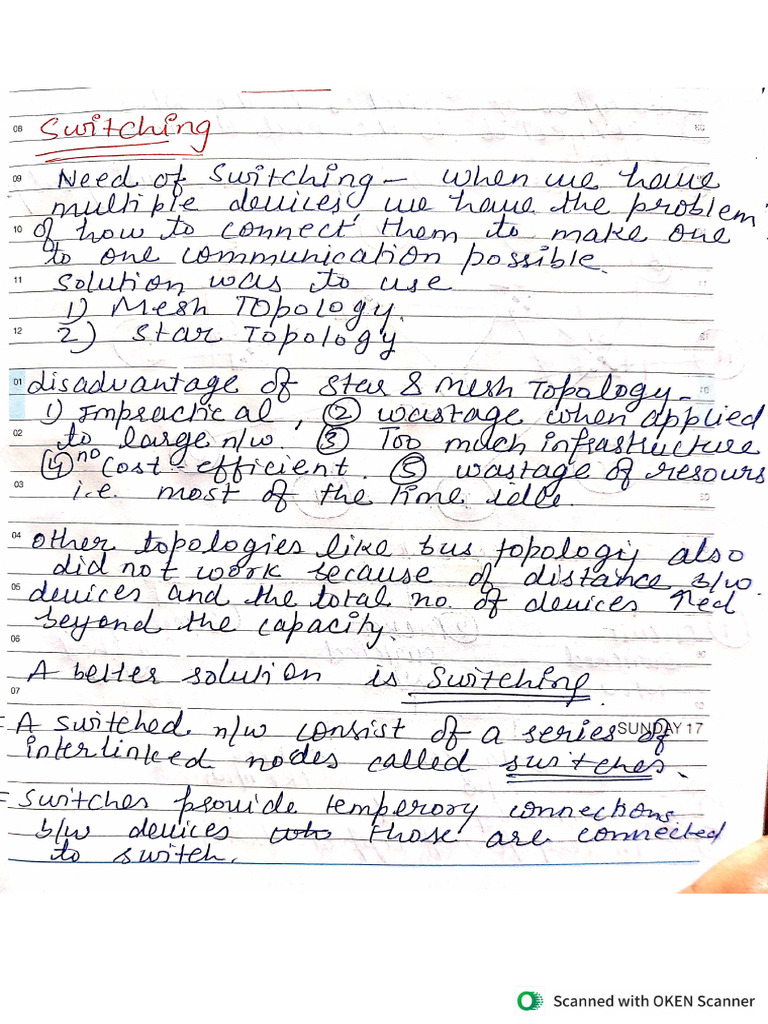 08 Switching
09 Need of Switching - when we have
multiple devices, we have the problem
10 of how to connect them to make one
to one communication possible.
11 solution was to use
1) Mesh Topology.
12 2) Star Topology
01 disadvantage of star & mesh Topology -
1) Impractical, ② wastage when applied
02 to large n/w. ③ Too much infrastructure
④ no cost-efficient. ⑤ wastage of resours
03 i.e. most of the time idle.
04 other topologies like bus topology also
did not work because of distance b/w.
05 devices and the total no. of devices ↑sed
beyond the capacity.
06
A better solution is switching.
07
= A switched n/w consist of a series of
SUNDAY 17
interlinked nodes called switches.
= switches provide temperory connections
b/w devices those are connected
to switch.
Scanned with OKEN Scanner